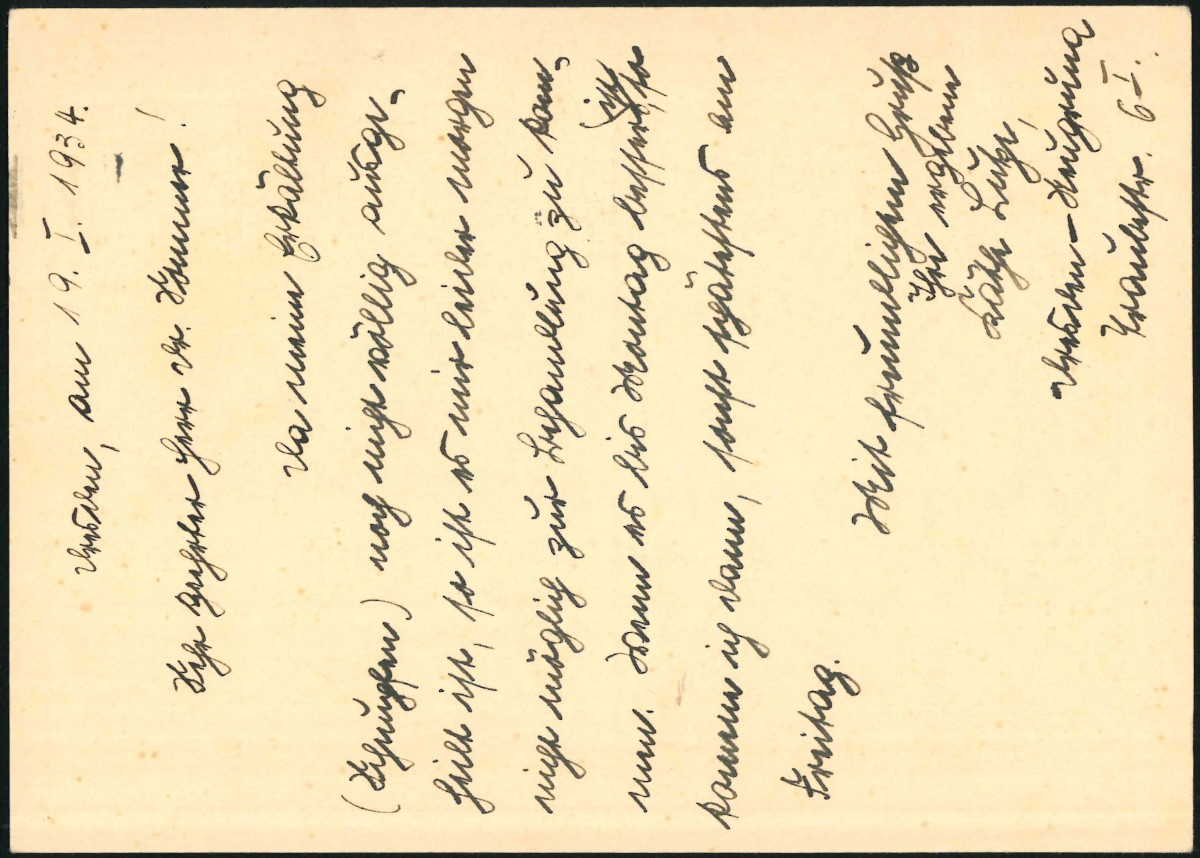 Dresden, am 19. I. 1934.
Sehr geehrter Herr Dr. !
Da meine Erkältung
(Schnupfen) noch nicht völlig ausge-
heilt ist, so ist es mir leider morgen
nicht möglich zur Behandlung zu kom-
men. Wenn es bis Montag besser ist, so
komme ich dann, sonst spätestens am
Freitag.
Mit freundlichem Gruß
Ihre ergebene
Käthe
Dresden-
6 I.